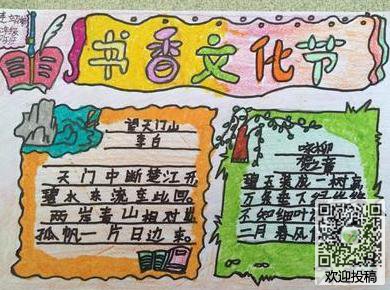 书香文化节
望天门山
李白
天门中断楚江开
碧水东流至此回。
两岸青山相对出
孤帆一片日边来。
咏柳
贺之章
碧玉装成一树高
万条垂下绿丝绦
不知细叶
二月春风
欢迎投稿